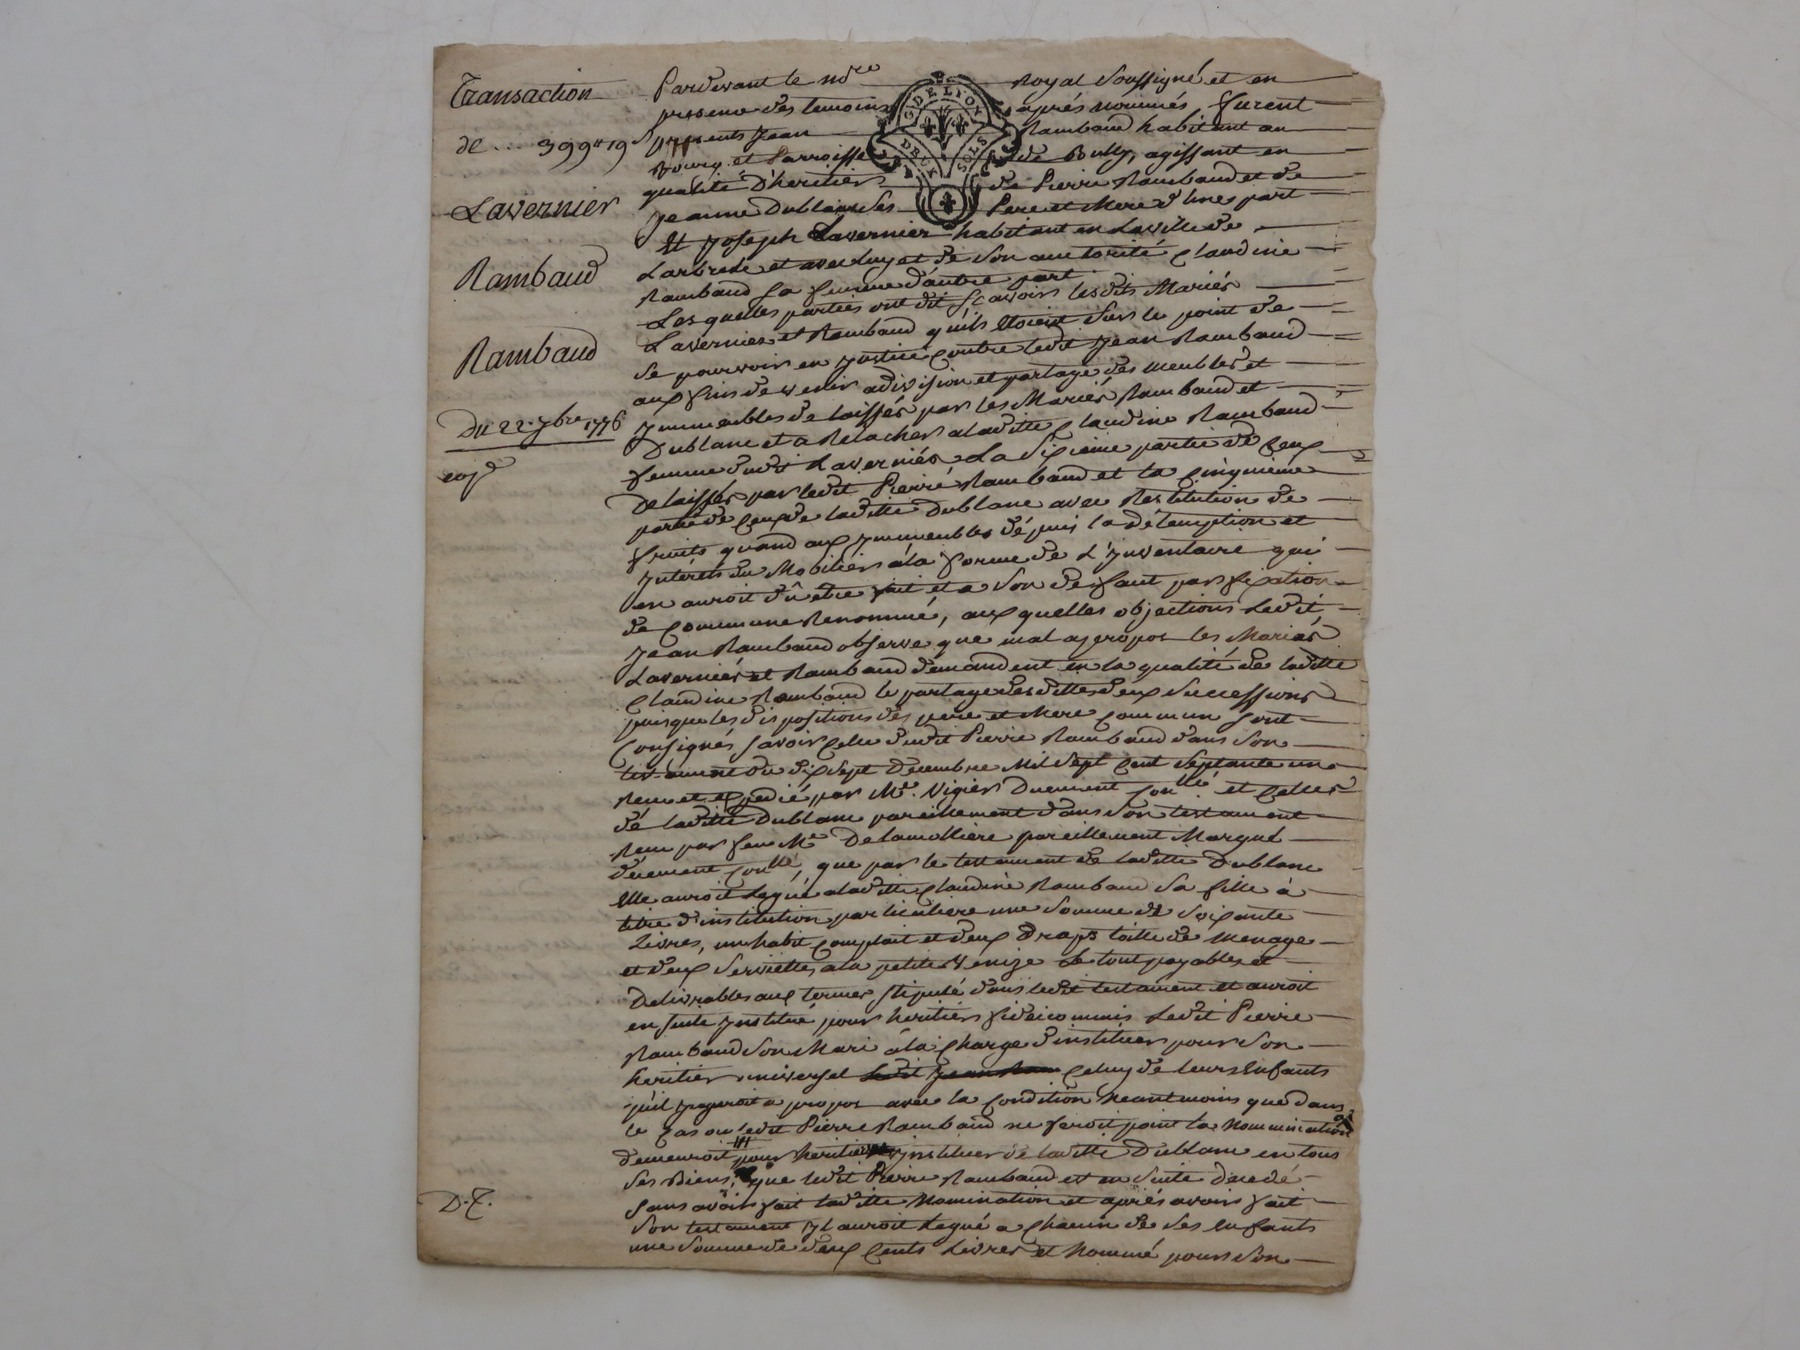 Transaction
de ... 399# 19s
Lavernier
Rambaud
Rambaud
Du 22. 7bre 1776
exp.é
G. DE LYON
DEUX SOLS
Pardevant le nore Royal Soussigné et en
presence des temoins aprés nommés, furent
presents Jean Rambaud habitant au
Bourg et Parroisse de Bully, agissant en
qualité D'heritier de Pierre Rambaud et de
Jeanne Dublanc Ses Pere et Mere d'une part
Et Joseph Lavernier habitant en La ville de
Larbresle et avec luy et de Son authorité Claudine
Rambaud Sa femme d'autre part.
Les quelles parties ont dit Sçavoir lesdits Mariés
Lavernier et Rambaud qu'ils étoient Sur le point de
Se pourvoir en Justice Contre ledit Jean Rambaud
aux fins de venir a division et partage des meubles et
Immeubles de laissés par les Mariés Rambaud et
Dublanc et a Relacher a laditte Claudine Rambaud
femme dudit Laverniér La Sixieme partie de Ceux
Delaissés par ledit Pierre Rambaud et la Cinquieme
partie de Ceux de laditte Dublanc avec Restitution de
fruits quand aux Immeubles dépuis la détemption et
Intérets du Mobilier a la forme de L'Inventaire qui
en auroit dû etre fait et a Son defaut par fixation
de Commune Renommé, aux quelles objections Ledit
Jean Rambaud observe que mal apropos les Mariés
Laverniér et Rambaud demandent en la qualité de laditte
Claudine Rambaud le partage des dittes deux Successions
puisque les dispositions des pere et Mere Commun Sont
Consignés Savoir Celle dudit Pierre Rambaud dans Son
testament du dix Sept Decembre Mil Sept Cent Septante un
Receu et expedié par Me. Vigier Duement Conllé. et Celles
de laditte Dublanc pareillement dans Son testament
Receu par feu Me Delamolliere pareillement Marqué
duement Conllé, que par le testament de laditte Dublanc
Elle auroit Legué a laditte Claudine Rambaud Sa fille à
titre d'institution particuliere une Somme de Soixante
Livres, un habit Complait et deux Draps toille de Menage
et deux Serviettes a la petite Venize le tout payables et
Delivrables aux termes Stipulé dans ledit testament et auroit
en Suite Institué pour heritier fideicommis Ledit Pierre
Rambaud Son Mari á la Charge d'instituer pour Son
heritier universel ledit Jean Ram Celuy de leurs Enfants
qu'il Jugeroit a propos avec la Condition Neantmoins que dans
le Cas ou ledit Pierre Rambaud ne feroit point la Nommination
demeuroit pour heritier instituer de laditte Dublanc en tous
Ses Biens, que ledit Pierre Rambaud est en Suite Decedé
Sans avoir fait laditte Nomination et aprés avoir fait
Son testament Il auroit Legué a Chacun de Ses Enfants
une Somme de deux Cents Livres et Nommé pour Son
D.T.